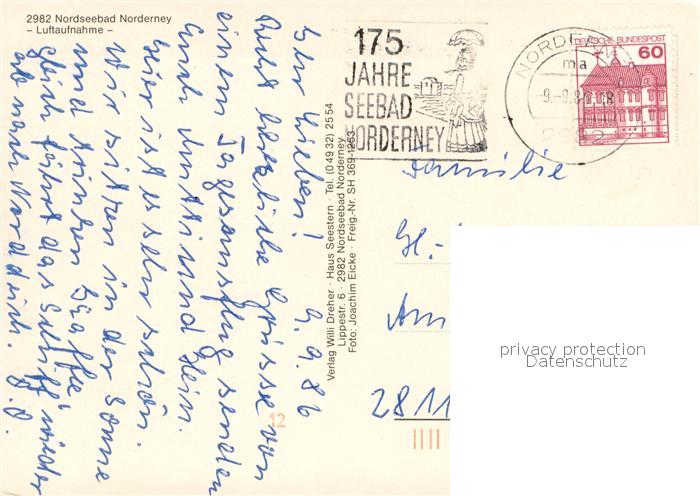 2982 Nordseebad Norderney
– Luftaufnahme –
175
JAHRE
SEEBAD
NORDERNEY
NORDERNEY
ma
-9.-9.8
2982
DEUTSCHE BUNDESPOST
60
Ihr Lieben! 9.9.86
Recht herzliche Grüsse von
einem Tagesausflug senden
Euch und Heim.
hier ist es sehr schön.
Wir sitzen in der Sonne
und trinken Kaffee
gleich fährt das Schiff wieder
ab nach Norddeich.
Verlag Willi Dreher · Haus Seestern · Tel. (0 49 32) 25 54
Lippestr. 6 · 2982 Nordseebad Norderney
Foto: Joachim Eicke · Freig.-Nr. SH 369-1253
Familie
Gl.-
Am
2811
12
privacy protection
Datenschutz